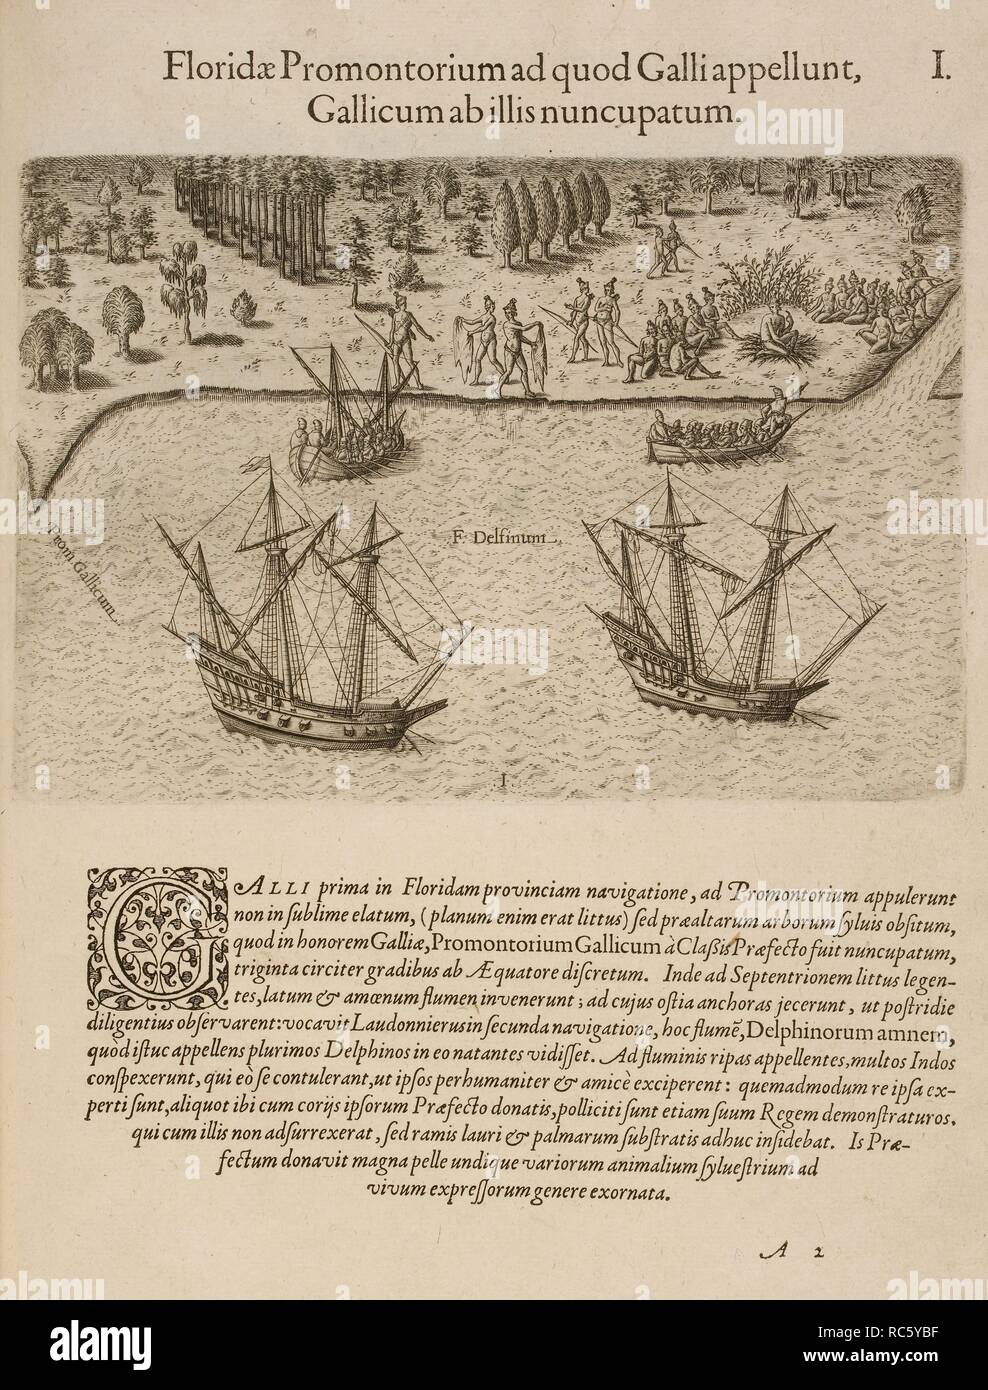 Floridæ Promontorium ad quod Galli appellunt, I.
Gallicum ab illis nuncupatum.
Prom Gallicum.
F. Delfinum.
I.
GALLI prima in Floridam provinciam navigatione, ad Promontorium appulerunt
non in ſublime elatum, (planum enim erat littus) ſed præaltarum arborum ſyluis obſitum,
quod in honorem Galliæ, Promontorium Gallicum à Claßis Præfecto fuit nuncupatum,
triginta circiter gradibus ab Æquatore diſcretum. Inde ad Septentrionem littus legen-
tes, latum & amœnum flumen invenerunt; ad cujus oſtia anchoras jecerunt, ut poſtridie
diligentius obſervarent: vocavit Laudonnierus in ſecunda navigatione, hoc flumẽ, Delphinorum amnem,
quòd iſtuc appellens plurimos Delphinos in eo natantes vidiſſet. Ad fluminis ripas appellentes, multos Indos
conſpexerunt, qui eò ſe contulerant, ut ipſos perhumaniter & amicè exciperent: quemadmodum re ipſa ex-
perti ſunt, aliquot ibi cum corijs ipſorum Præfecto donatis, polliciti ſunt etiam ſuum Regem demonſtraturos.
qui cum illis non adſurrexerat, ſed ramis lauri & palmarum ſubſtratis adhuc inſidebat. Is Præ-
fectum donavit magna pelle undique variorum animalium ſylueſtrium ad
vivum expreſſorum genere exornata.
A 2
alamy
Image ID: RC5YBF
www.alamy.com